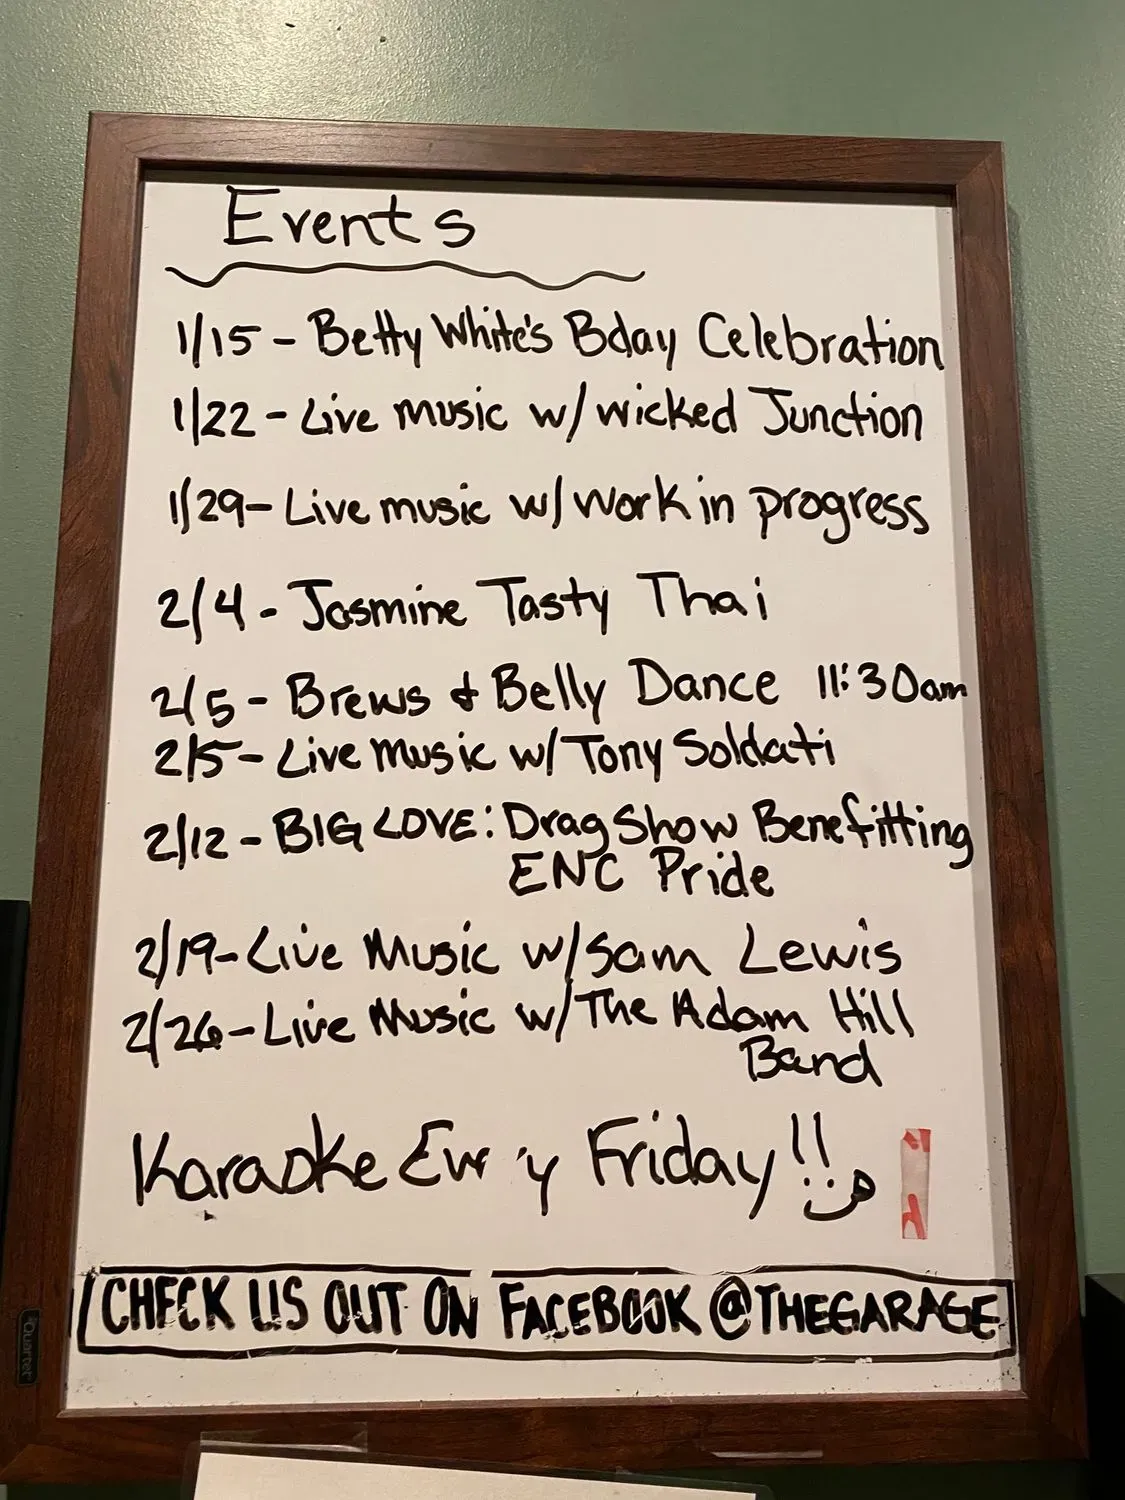 Events
1/15 - Betty White's Bday Celebration
1/22 - Live music w/ wicked Junction
1/29 - Live music w/ work in progress
2/4 - Jasmine Tasty Thai
2/5 - Brews & Belly Dance 11:30am
2/5 - Live music w/ Tony Soldati
2/12 - BIG LOVE: Drag Show Benefitting
ENC Pride
2/19 - Live Music w/ Sam Lewis
2/26 - Live Music w/ The Adam Hill
Band
Karaoke Ev y Friday!!
CHECK US OUT ON FACEBOOK @THEGARAGE
Quartet